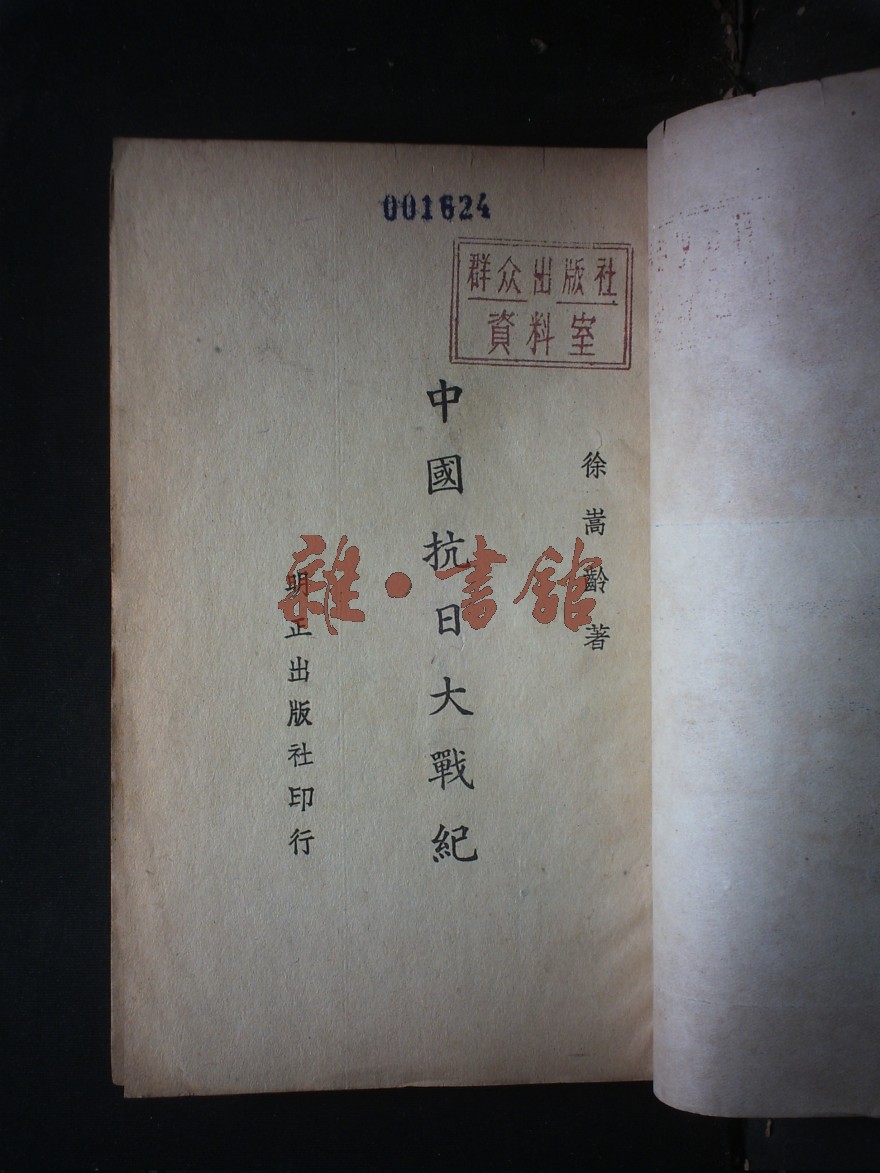 001624
群众出版社
資料室
徐嵩齡著
中國抗日大戰紀
明正出版社印行
雜·書館